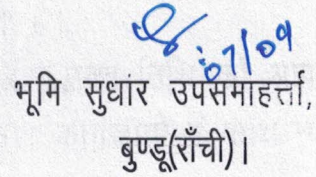 07/09
भूमि सुधार उपसमाहर्त्ता,
बुण्डू(राँची)।